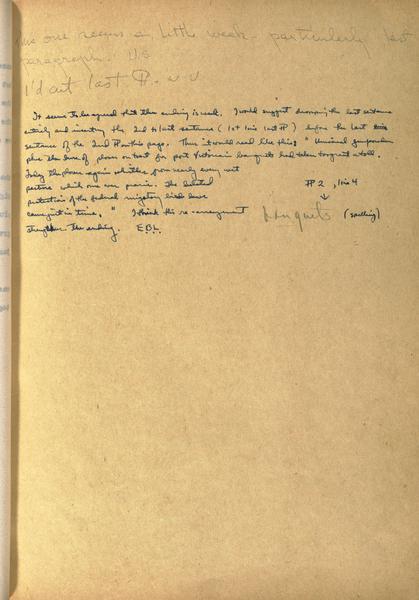 This one seems a little weak - particularly last
paragraph. US
I'd cut last ¶. W.V.
It seems to be agreed that the ending is weak. I would suggest dropping the last sentence
entirely and inserting the 2nd to last sentence (1st in last ¶) before the last
sentence of the 2nd ¶ on this page. Thus it would read like this: " Universal gunpowder
plus the lure of plover on toast for post Victorian banquets had taken too great a toll.
Today the plover again whistles from nearly every wet
pasture which one can prairie. The belated
protection of the federal migratory bird laws
came just in time. " I think this re-arrangement
strengthens the ending. EBL
¶ 2, line 4
↓
banquets (spelling)